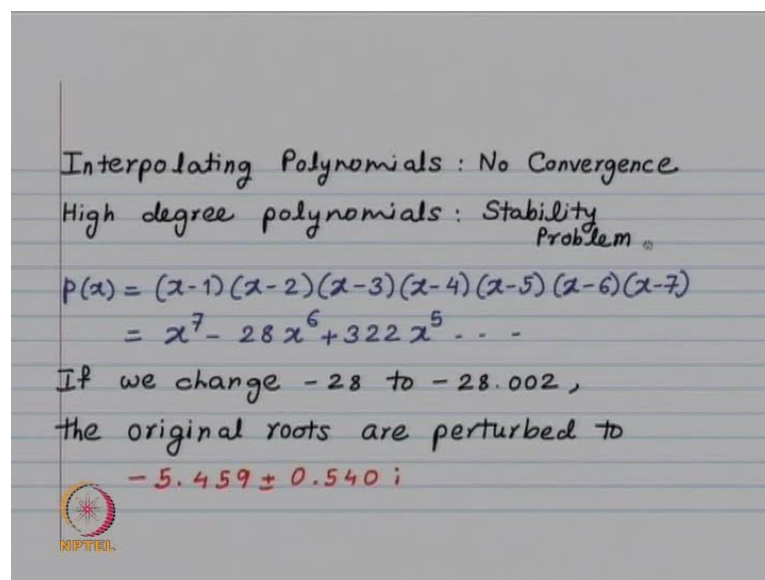 Interpolating Polynomials : No Convergence
High degree polynomials : Stability
Problem.
p(x) = (x-1)(x-2)(x-3)(x-4)(x-5)(x-6)(x-7)
= x⁷ - 28x⁶ + 322x⁵ - - -
If we change -28 to -28.002,
the original roots are perturbed to
-5.459 ± 0.540 i
NPTEL